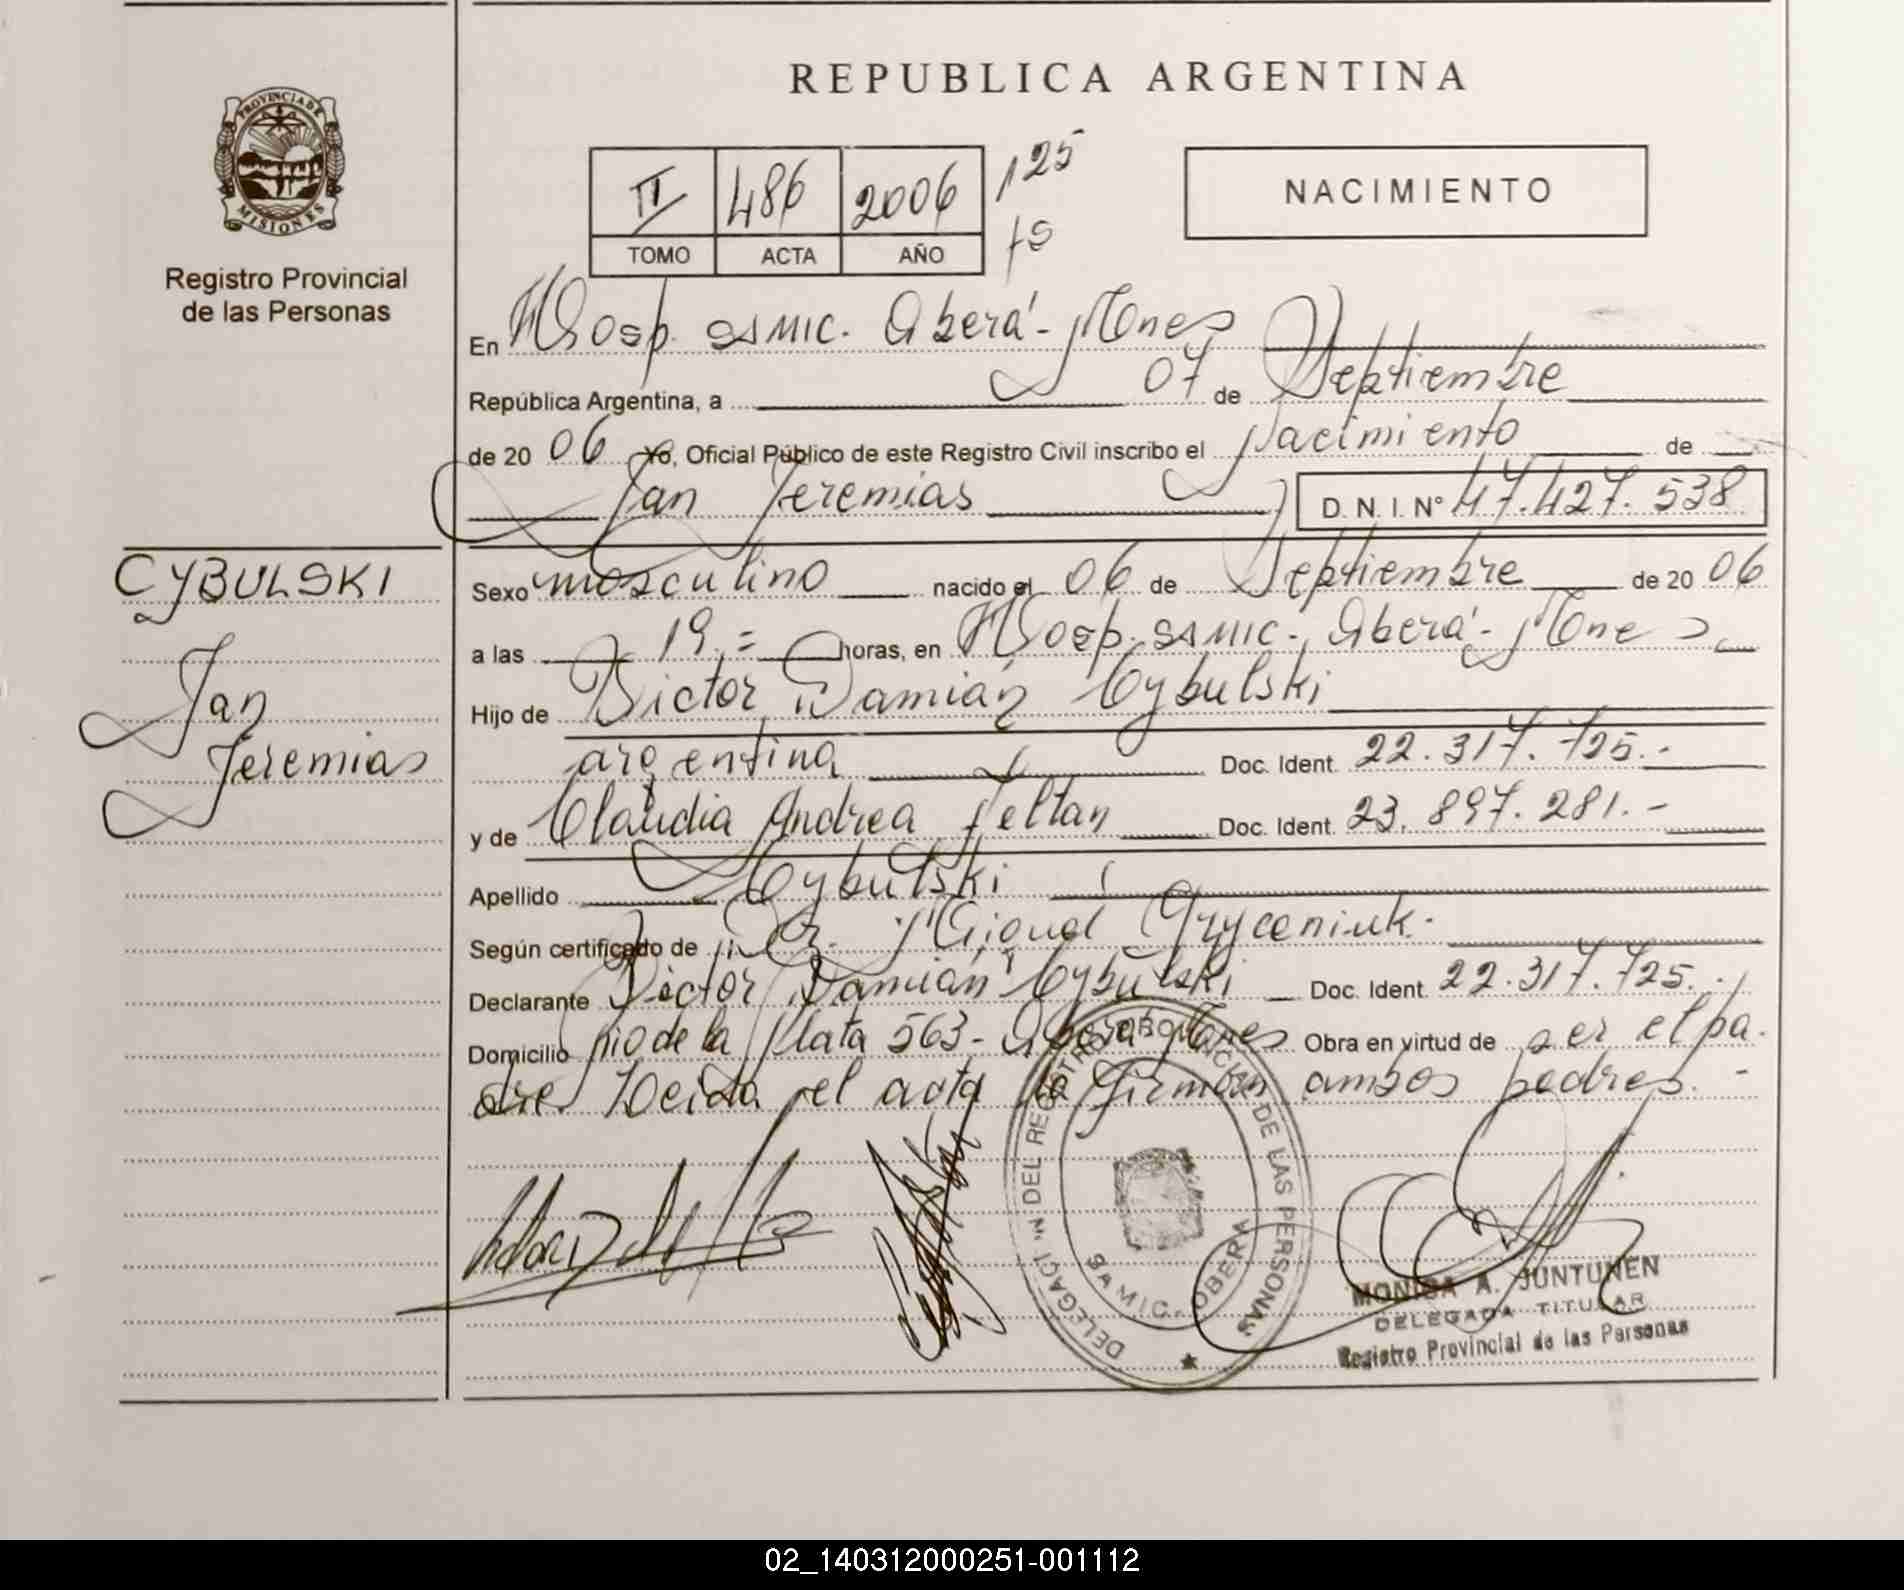 REPUBLICA ARGENTINA
PROVINCIA DE
MISIONES
Registro Provincial
de las Personas
II 486 2006 125
TOMO ACTA AÑO
NACIMIENTO
En Hosp. SAMIC. Oberá - Mnes
República Argentina, a 07 de Septiembre
de 20 06 Yo, Oficial Público de este Registro Civil inscribo el Nacimiento de
Jan Jeremias D. N. I. Nº 47.427.538
CYBULSKI
Jan
Jeremias
Sexo masculino nacido el 06 de Septiembre de 20 06
a las 19.= horas, en Hosp. SAMIC., Oberá - Mnes
Hijo de Victor Damián Cybulski
argentina Doc. Ident. 22.317.725.-
y de Claudia Andrea Feltan Doc. Ident. 23.897.281.-
Apellido Cybulski
Según certificado de Dr. Miguel Gryceniuk.
Declarante Victor Damián Cybulski Doc. Ident. 22.317.725.-
Domicilio Rio de la Plata 563 - Oberá Mnes Obra en virtud de ser el pa
dre Leida el acta la firman ambos padres.-
DELEGACIÓN DEL REGISTRO PROVINCIAL DE LAS PERSONAS
SAMIC. OBERA
MONICA A. JUNTUNEN
DELEGADA TITULAR
Registro Provincial de las Personas
02_140312000251-001112